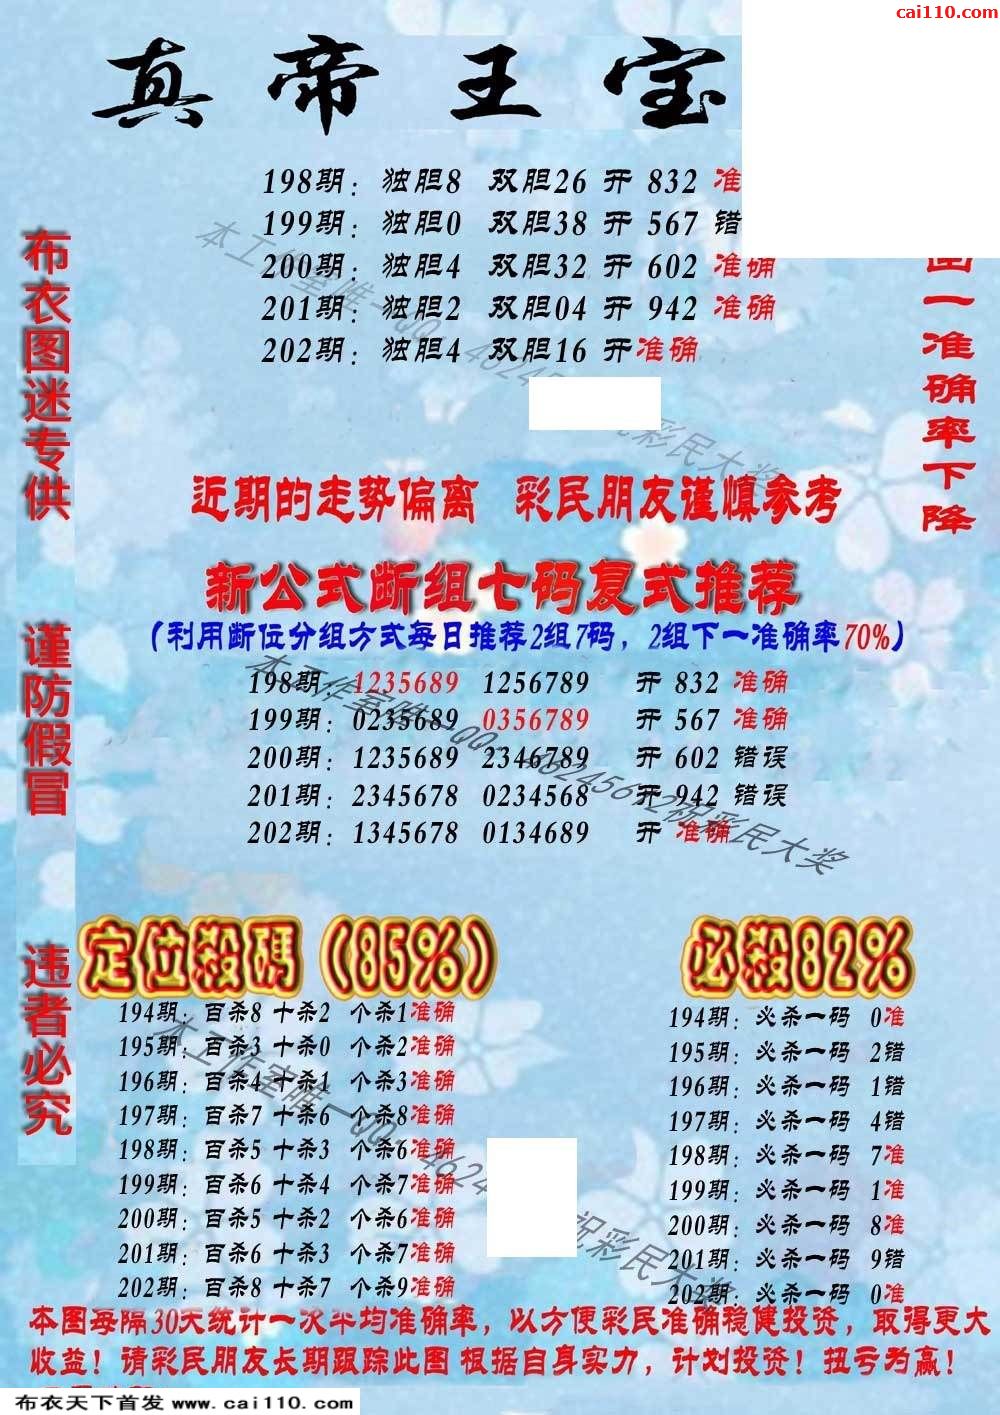 cai110.com
真帝王宝
198期：独胆8 双胆26 开 832 准
199期：独胆0 双胆38 开 567 错
200期：独胆4 双胆32 开 602 准确
201期：独胆2 双胆04 开 942 准确
202期：独胆4 双胆16 开准确
布衣图迷专供 谨防假冒 违者必究
一准确率下降
近期的走势偏离 彩民朋友谨慎参考
新公式断组七码复式推荐
（利用断位分组方式每日推荐2组7码，2组下一准确率70%）
198期：1235689 1256789 开 832 准确
199期：0235689 0356789 开 567 准确
200期：1235689 2346789 开 602 错误
201期：2345678 0234568 开 942 错误
202期：1345678 0134689 开 准确
定位殺碼（85%）
194期：百杀8 十杀2 个杀1准确
195期：百杀3 十杀0 个杀2准确
196期：百杀4 十杀1 个杀3准确
197期：百杀7 十杀6 个杀8准确
198期：百杀5 十杀3 个杀6准确
199期：百杀6 十杀4 个杀7准确
200期：百杀5 十杀2 个杀6准确
201期：百杀6 十杀3 个杀7准确
202期：百杀8 十杀7 个杀9准确
必殺82%
194期：必杀一码 0准
195期：必杀一码 2错
196期：必杀一码 1错
197期：必杀一码 4错
198期：必杀一码 7准
199期：必杀一码 1准
200期：必杀一码 8准
201期：必杀一码 9错
202期：必杀一码 0准
本图每隔30天统计一次平均准确率，以方便彩民准确稳健投资，取得更大
收益！请彩民朋友长期跟踪此图 根据自身实力，计划投资！扭亏为赢！
布衣天下首发 www.cai110.com